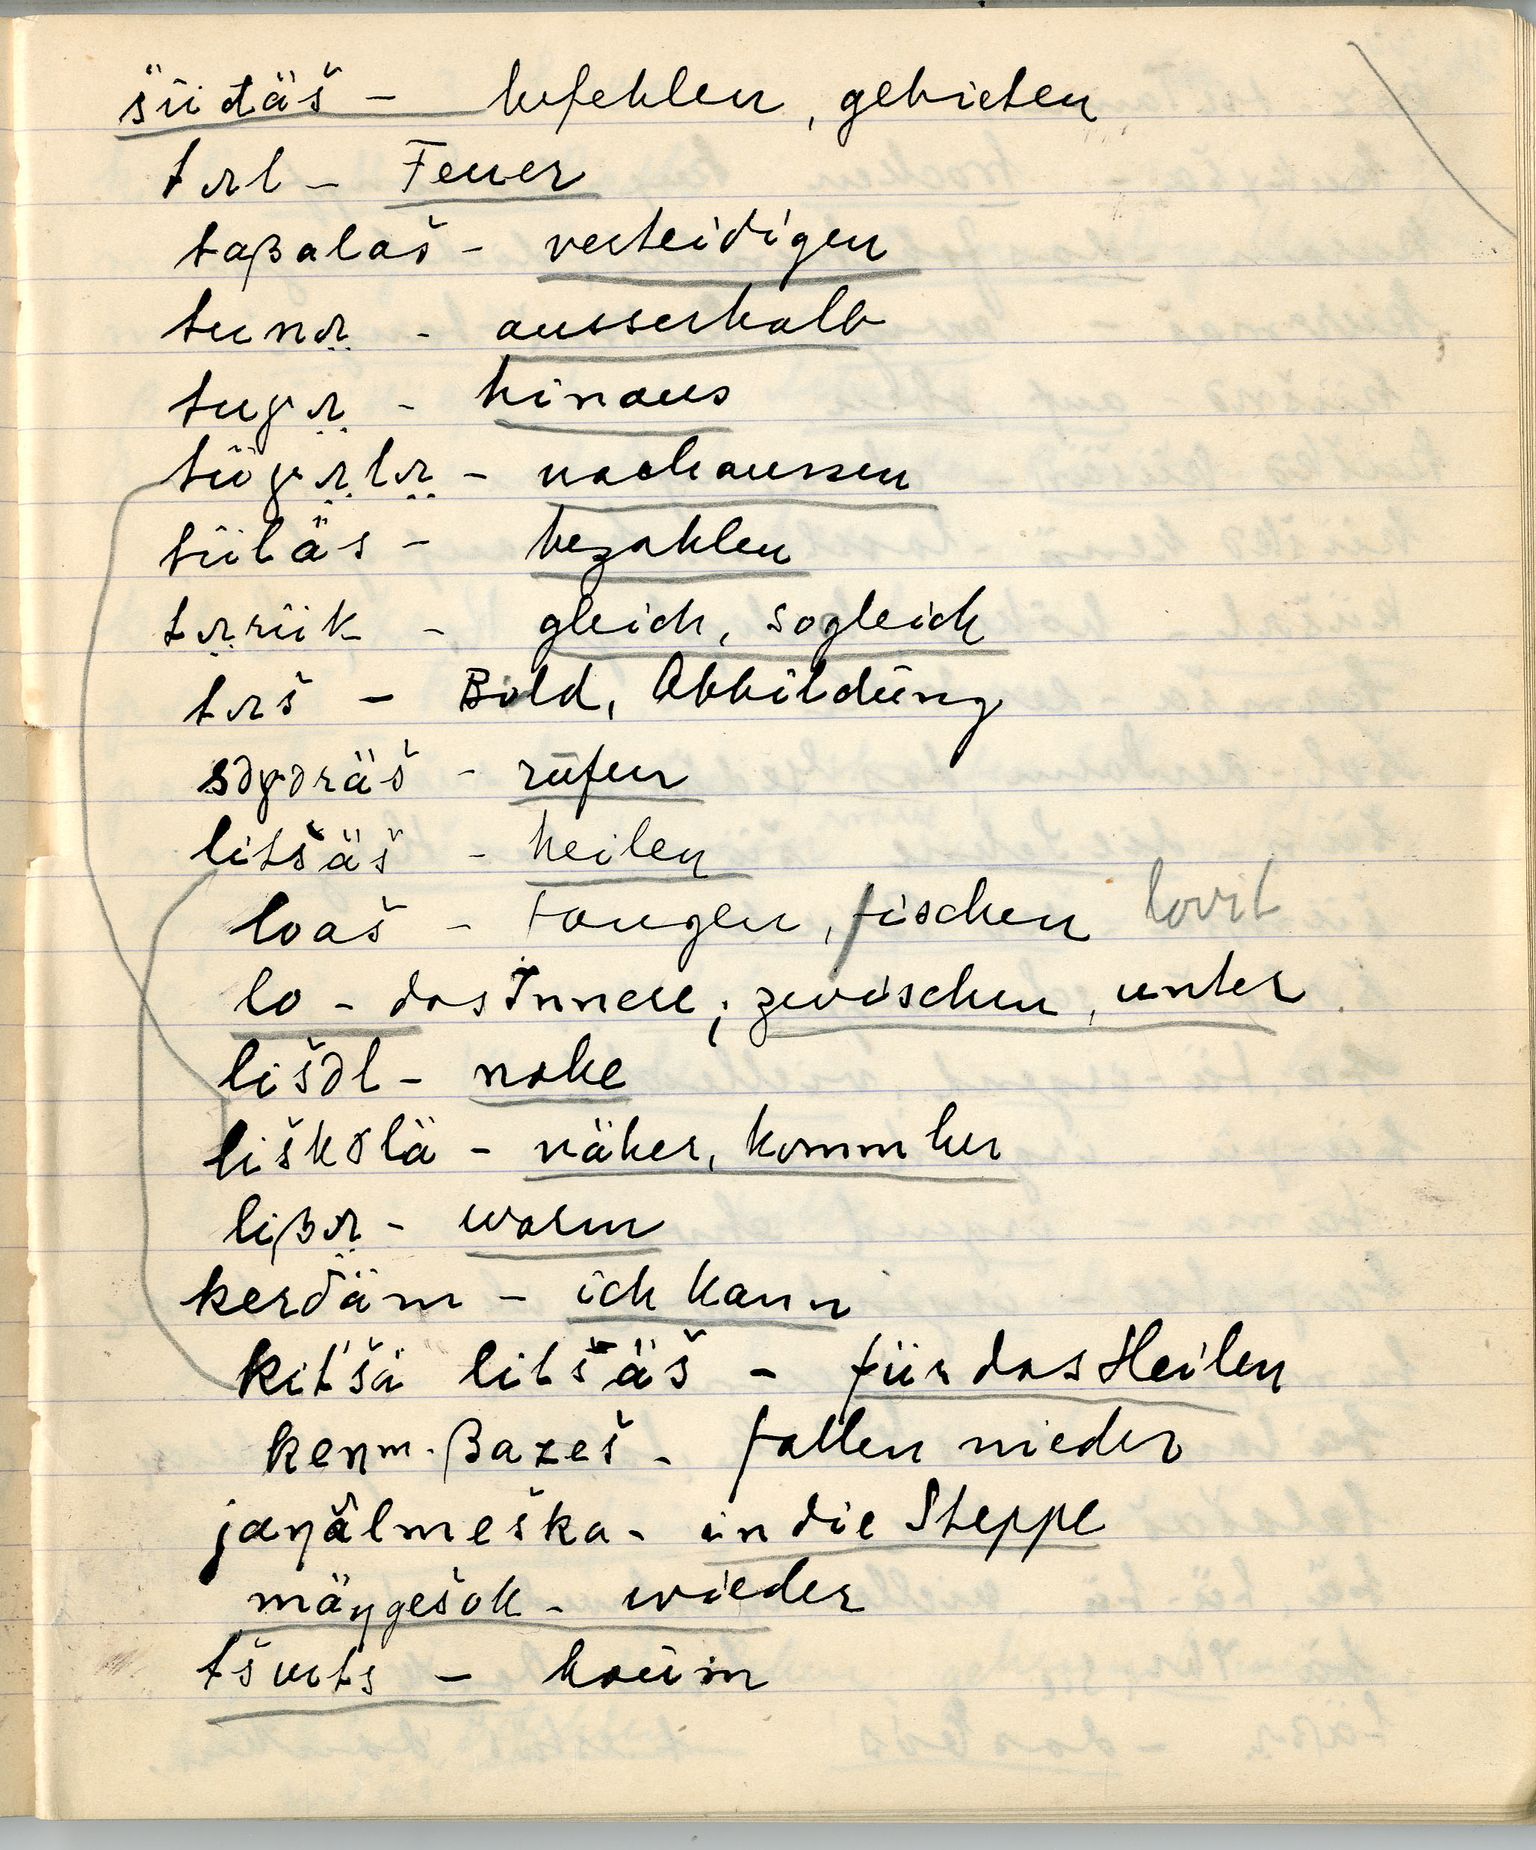 šüdäš - befehlen, gebieten
tʌl - Feuer
taβalaš - verteidigen
tunʌ̤ - ausserhalb
tuγʌ̤ - hinaus
tüγʌ̤lʌ̤ - nachaussen
tüläs - bezahlen
tʌ̤rük - gleich, sogleich
tʌš - Bild, Abbildung
səγəräš - rufen
litšäš - heilen
loaš - fangen, fischen lovit
lo - das Innere; zwischen, unter
lišəl - nahe
liškəlä - näher, komm her
liβʌ̤ - warm
kerδäm - ich kann
kit'šä litšäš - für das Heilen
keŋm-βazeš - fallen nieder
jaŋälmeška - in die Steppe
mäŋgešok - wieder
tšuts - kaum